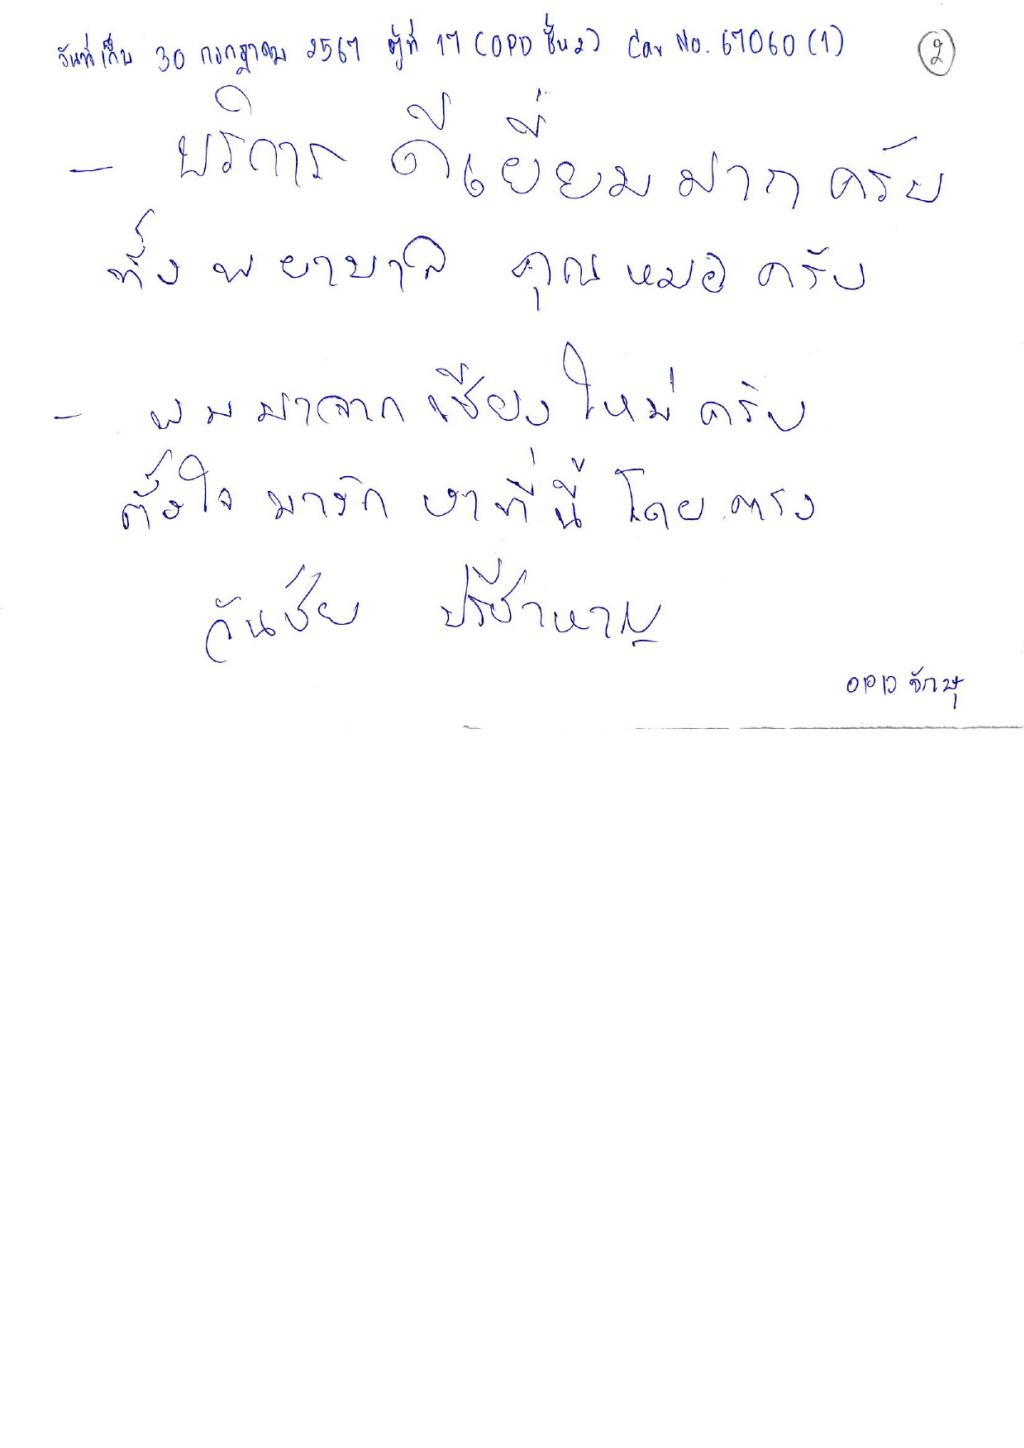 วันที่เก็บ 30 กรกฎาคม 2567 ตู้ที่ 17 (OPD ชั้น 2) Car No. 67060 (1) 2
- บริการ ดีเยี่ยมมาก ครับ
ทั้ง พยาบาล คุณ หมอ ครับ
- ผมมาจาก เชียงใหม่ ครับ
ตั้งใจ มารักษาที่นี้ โดยตรง
วันชัย ปรีชาหาญ
OPD จักษุ